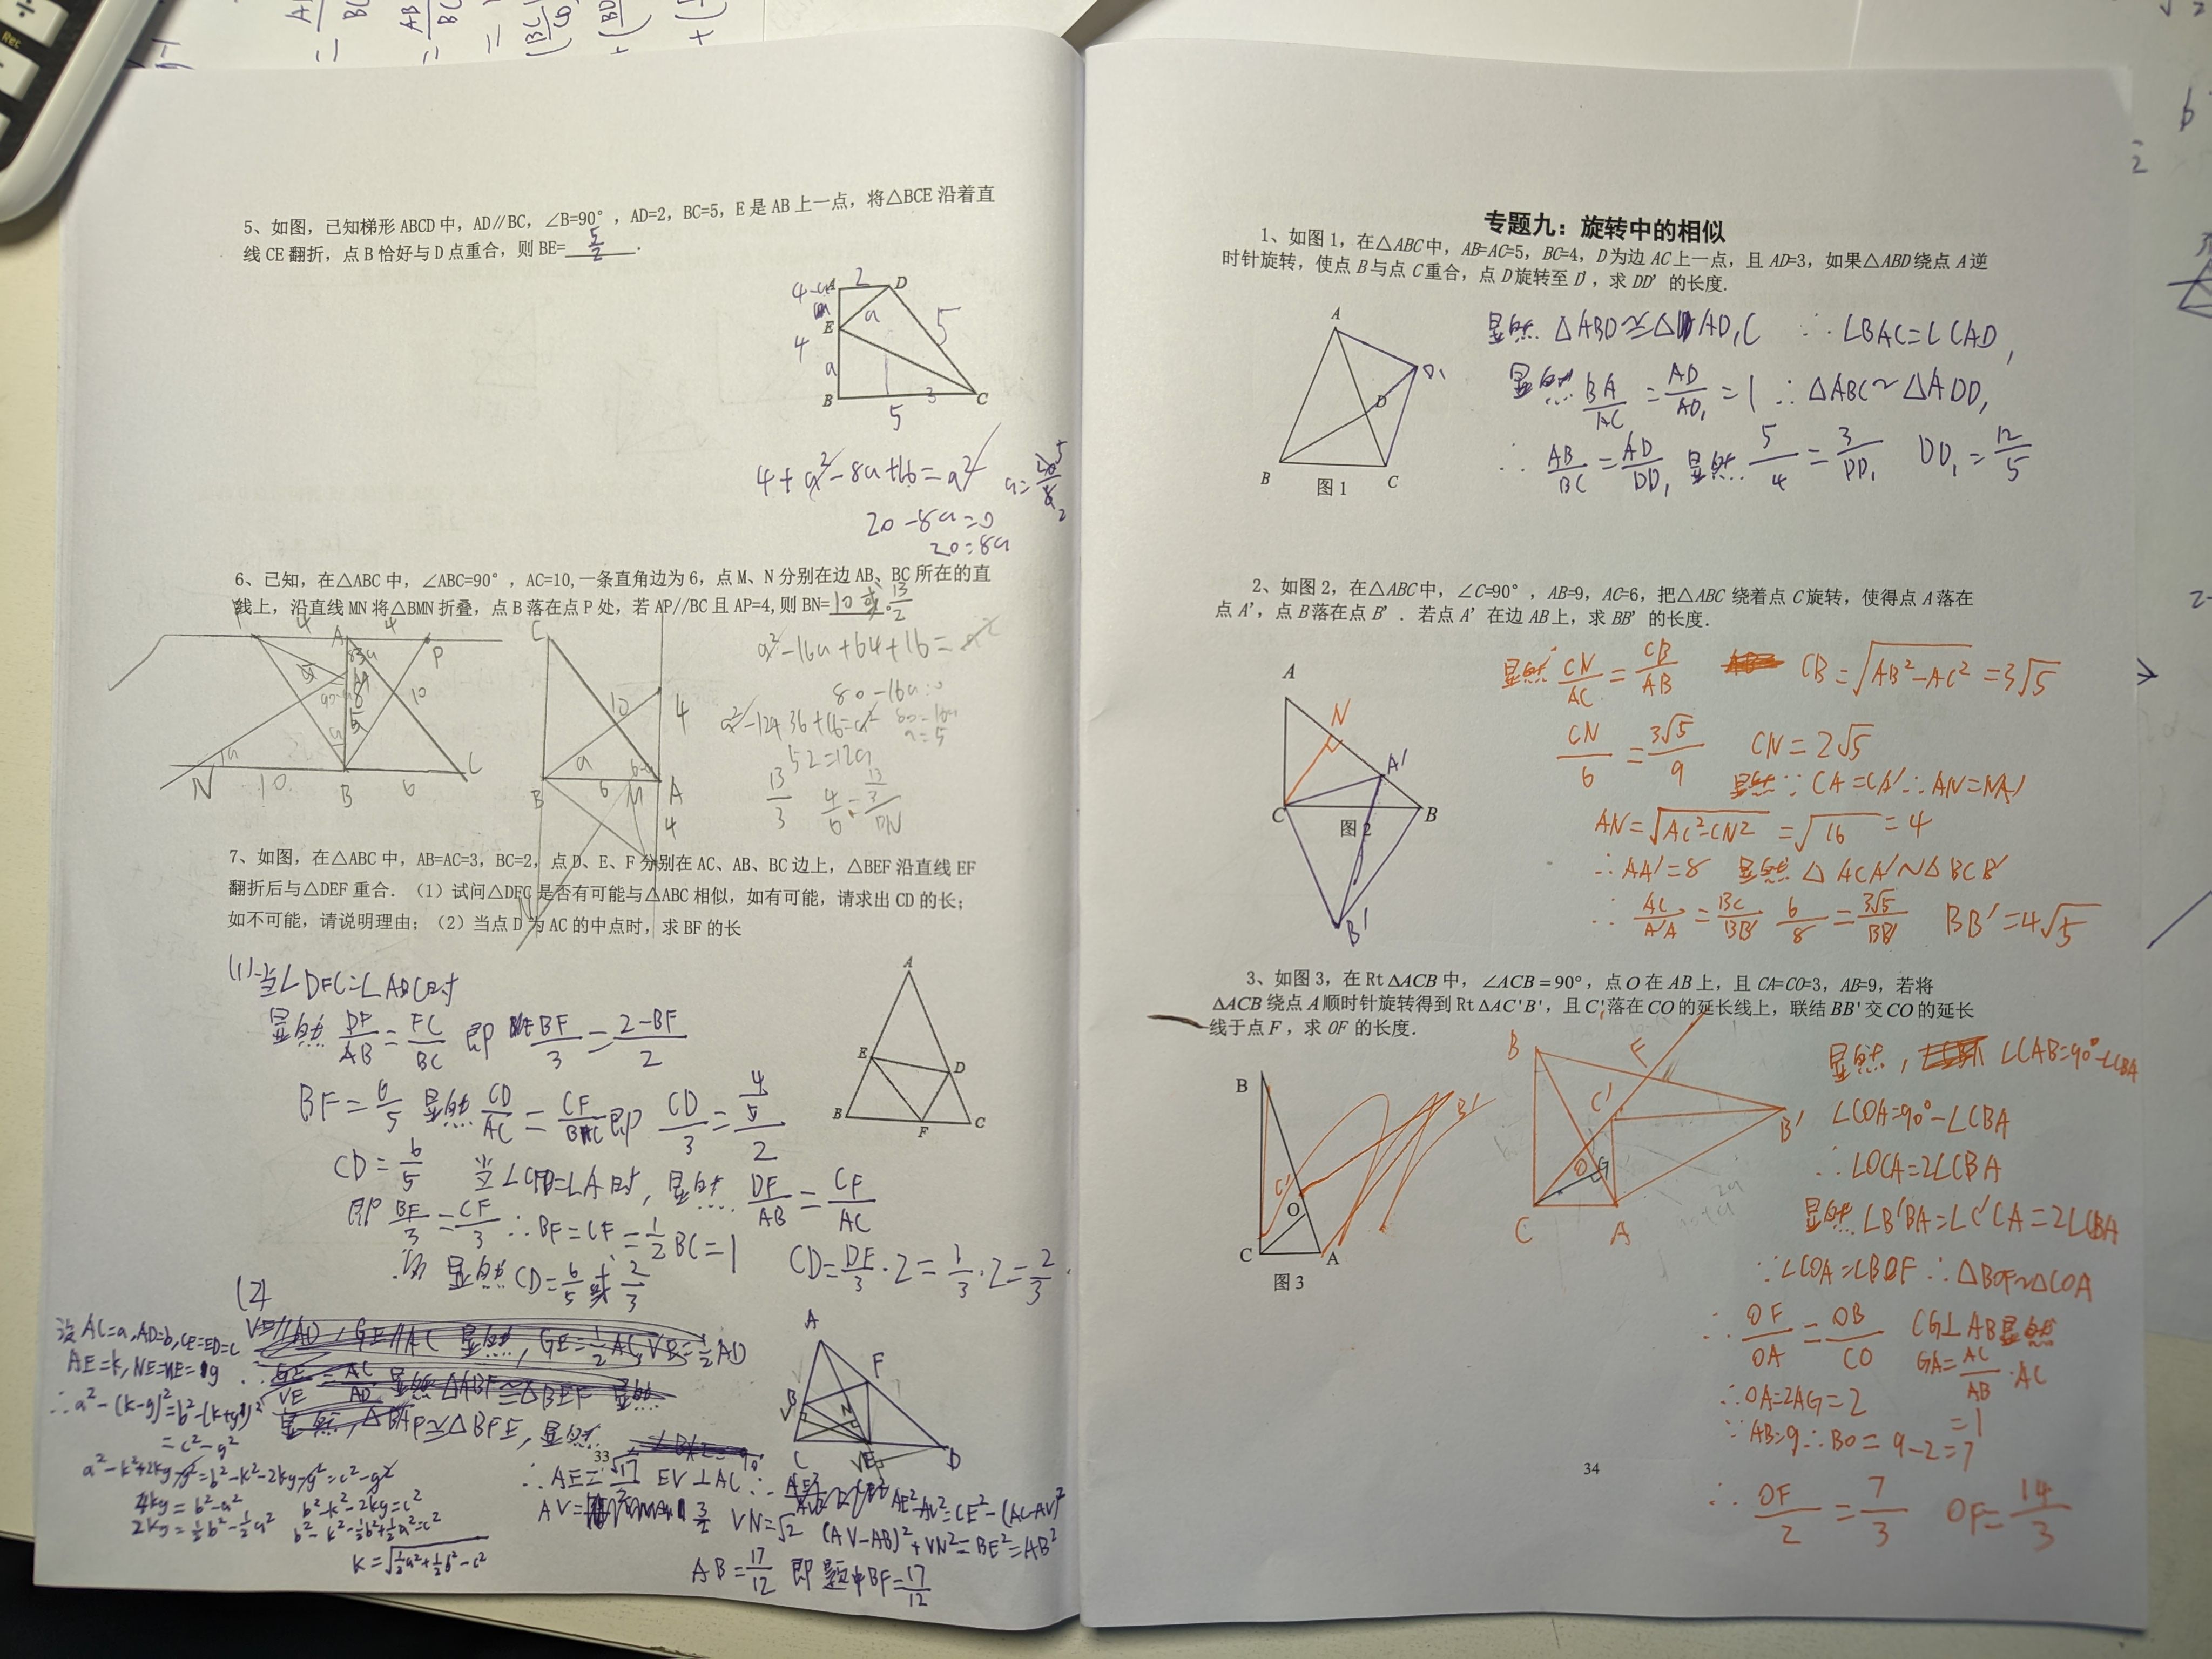 5、如图，已知梯形 ABCD 中，AD∥BC，∠B=90°，AD=2，BC=5，E 是 AB 上一点，将△BCE 沿着直
线 CE 翻折，点 B 恰好与 D 点重合，则 BE= 5/2 .
4-a A 2 D
E a 5
4
a
B 5 3 C
4+a²-8a+16=a²
20-8a=0
20=8a
6、已知，在△ABC 中，∠ABC=90°，AC=10,一条直角边为 6，点 M、N 分别在边 AB、BC 所在的直
线上，沿直线 MN 将△BMN 折叠，点 B 落在点 P 处，若 AP//BC 且 AP=4,则 BN= 10 或 13/2
4 A 4 P
10
N 10 B 6 C
C
10 4
a
B 6 M A
4
a²-16a+64+16=a²
80-16a=0
a=5
52=12a
13/3
7、如图，在△ABC 中，AB=AC=3，BC=2，点 D、E、F 分别在 AC、AB、BC 边上，△BEF 沿直线 EF
翻折后与△DEF 重合．（1）试问△DFC 是否有可能与△ABC 相似，如有可能，请求出 CD 的长；
如不可能，请说明理由；（2）当点 D 为 AC 的中点时，求 BF 的长
(1)当∠DFC=∠ABC时
显然 DF/AB=FC/BC 即 BF/3=2-BF/2
BF=6/5 显然 CD/AC=CF/BC 即 CD/3=4/5/2
CD=6/5 当∠CFD=∠A时，显然 DF/AB=CF/AC
即 BF/3=CF/3 ∴BF=CF=1/2BC=1
CD=DF/3·2=1/3·2=2/3
显然CD=6/5或2/3
A
E D
B F C
(2)
设AC=a,AD=b,CE=ED=c
AE=k,NE=ME=g
∴a²-(k-g)²=b²-(k+g)²
=c²-g²
4kg=b²-a²
2kg=1/2b²-1/2a²
b²-k²-2kg=c²
b²-k²-1/2b²+1/2a²=c²
k=√1/2a²+1/2b²-c²
A
F
B N
C E D
∴AE=√17/2 EV⊥AC
AE²-AV²=CE²-(AC-AV)²
VN=√2 (AV-AB)²+VN²=BE²=AB²
AB=17/12 即题中BF=17/12
33
专题九：旋转中的相似
1、如图 1，在△ABC 中，AB=AC=5，BC=4，D 为边 AC 上一点，且 AD=3，如果△ABD 绕点 A 逆
时针旋转，使点 B 与点 C 重合，点 D 旋转至 D'，求 DD' 的长度.
A
D₁
D
B 图 1 C
显然 △ABD≌△AD₁C ∴∠BAC=∠CAD₁
显然 BA/AC=AD/AD₁=1 ∴△ABC∽△ADD₁
∴ AB/BC=AD/DD₁ 显然 5/4=3/DD₁ DD₁=12/5
2、如图 2，在△ABC 中，∠C=90°，AB=9，AC=6，把△ABC 绕着点 C 旋转，使得点 A 落在
点 A'，点 B 落在点 B'．若点 A' 在边 AB 上，求 BB' 的长度.
A
N
A'
C 图 2 B
B'
显然 CN/AC=CB/AB CB=√AB²-AC²=3√5
CN/6=3√5/9 CN=2√5
显然∵CA=CA'∴AN=NA'
AN=√AC²-CN²=√16=4
∴AA'=8 显然△ACA'∽△BCB'
∴ AC/A'A=BC/BB' 6/8=3√5/BB' BB'=4√5
3、如图 3，在 Rt△ACB 中，∠ACB=90°，点 O 在 AB 上，且 CA=CO=3，AB=9，若将
△ACB 绕点 A 顺时针旋转得到 Rt△AC'B'，且 C'落在 CO 的延长线上，联结 BB' 交 CO 的延长
线于点 F，求 OF 的长度.
B
B'
C'
O
C A
图 3
B F
C'
B'
O G
C A
显然，∠CAB=90°-∠CBA
∠COA=90°-∠CBA
∴∠OCA=2∠CBA
显然∠B'BA=∠C'CA=2∠CBA
∵∠COA=∠BOF ∴△BOF∽△COA
∴ OF/OA=OB/CO CG⊥AB显然
GA=AC/AB·AC
∴OA=2AG=2
=1
∵AB=9∴BO=9-2=7
∴ OF/2=7/3 OF=14/3
34